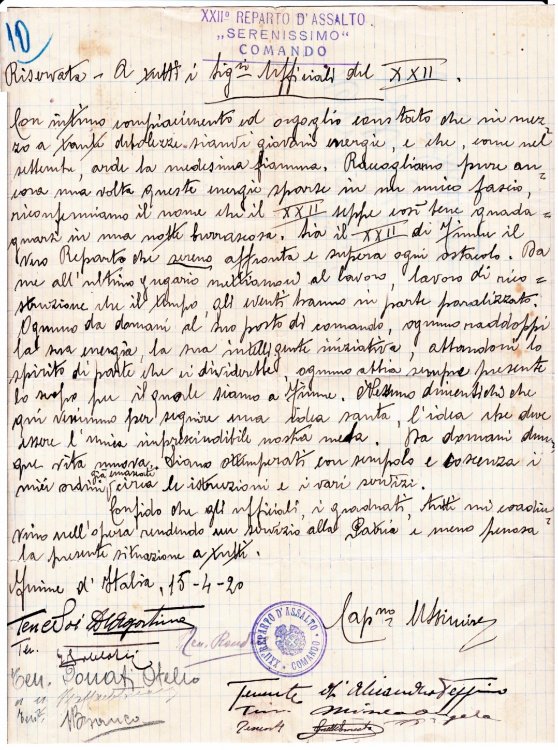 10
XXIIº REPARTO D'ASSALTO
„SERENISSIMO"
COMANDO
Riservata - A tutti i Sigri Ufficiali del XXII.
Con intimo compiacimento ed orgoglio constato che in mez-
zo a tante debolezze siamvi giovani energie, e che, come nel
settembre, arde la medesima fiamma. Raccogliamo pure an-
cora una volta queste energie sparse in un unico fascio,
riconfermiamo il nome che il XXII seppe così bene guada-
gnarsi in una notte burrascosa. Sia il XXII di Fiume il
vero Reparto che sereno affronta e supera ogni ostacolo. Da
me all'ultimo gregario mettiamoci al lavoro, lavoro di rico=
struzione che il tempo, gli eventi hanno in parte paralizzato.
Ognuno da domani al suo posto di comando, ognuno raddoppi
la sua energia, la sua intelligente iniziativa, abbandoni lo
spirito di parte che ci dividerebbe, ognuno abbia sempre presente
lo scopo per il quale siamo a Fiume. Nessuno dimentichi che
qui venimmo per seguire una idea santa, l'idea che deve
essere l'unica imprescindibile nostra meta. Da domani dun-
que vita nuova. Siano ottemperati con scrupolo e coscienza i
miei ordini già emanati circa le istruzioni e i vari servizi.
Confido che gli ufficiali, i graduati, tutti mi coadiu
vino nell'opera rendendo un servizio alla Patria e meno penosa
la presente situazione a tutti.
Fiume d'Italia, 15-4-20
Capno
XXIIº REPARTO D'ASSALTO
COMANDO
D'Agostino
Ten.
Ten.
Ten. Donati Stelio
Tenente D'Alessandro Peppino
Ten.
Bianco
Tenente